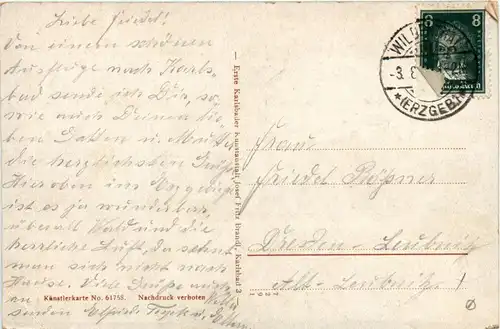 Liebe Friedel!
Von einem schönen
Ausfluge nach Karls-
bad sende ich Dir, so-
wie auch Deinen lie-
ben Gatten u. Mutter
die herzlichsten Grüße
Hier oben im Erzgebirge
ist es ja wunderbar,
überall Wald und die
herrliche Luft, da sehnt
man sich nicht nach
Hause. Viele Grüße auch
an
senden Elfriede
Künstlerkarte No. 61758. Nachdruck verboten
— Erste Karlsbader Kunstanstalt Josef Fritz Brandl, Karlsbad
1931
8 8
WILD
-3. 8
*(ERZGEB.)
Frau
Friedel
Dresden-Leubnitz
Alt-Leubnitz 1